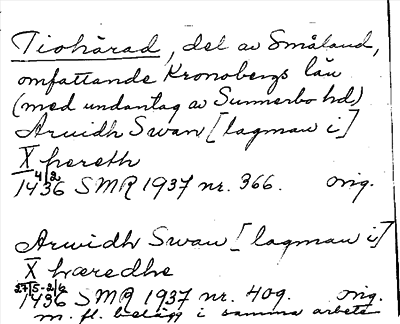 Tiohärad, del av Småland,
omfattande Kronobergs län
(med undantag av Sunnerbo hd)
Arwidh Swan [lagman i]
X hereth
4/2
1436 SMR 1937 nr. 366. orig.
Arwidh Swan [lagman i]
X hæredhe
27/5-2/6
1436 SMR 1937 nr. 409. orig.
m. fl. belägg i samma arbete